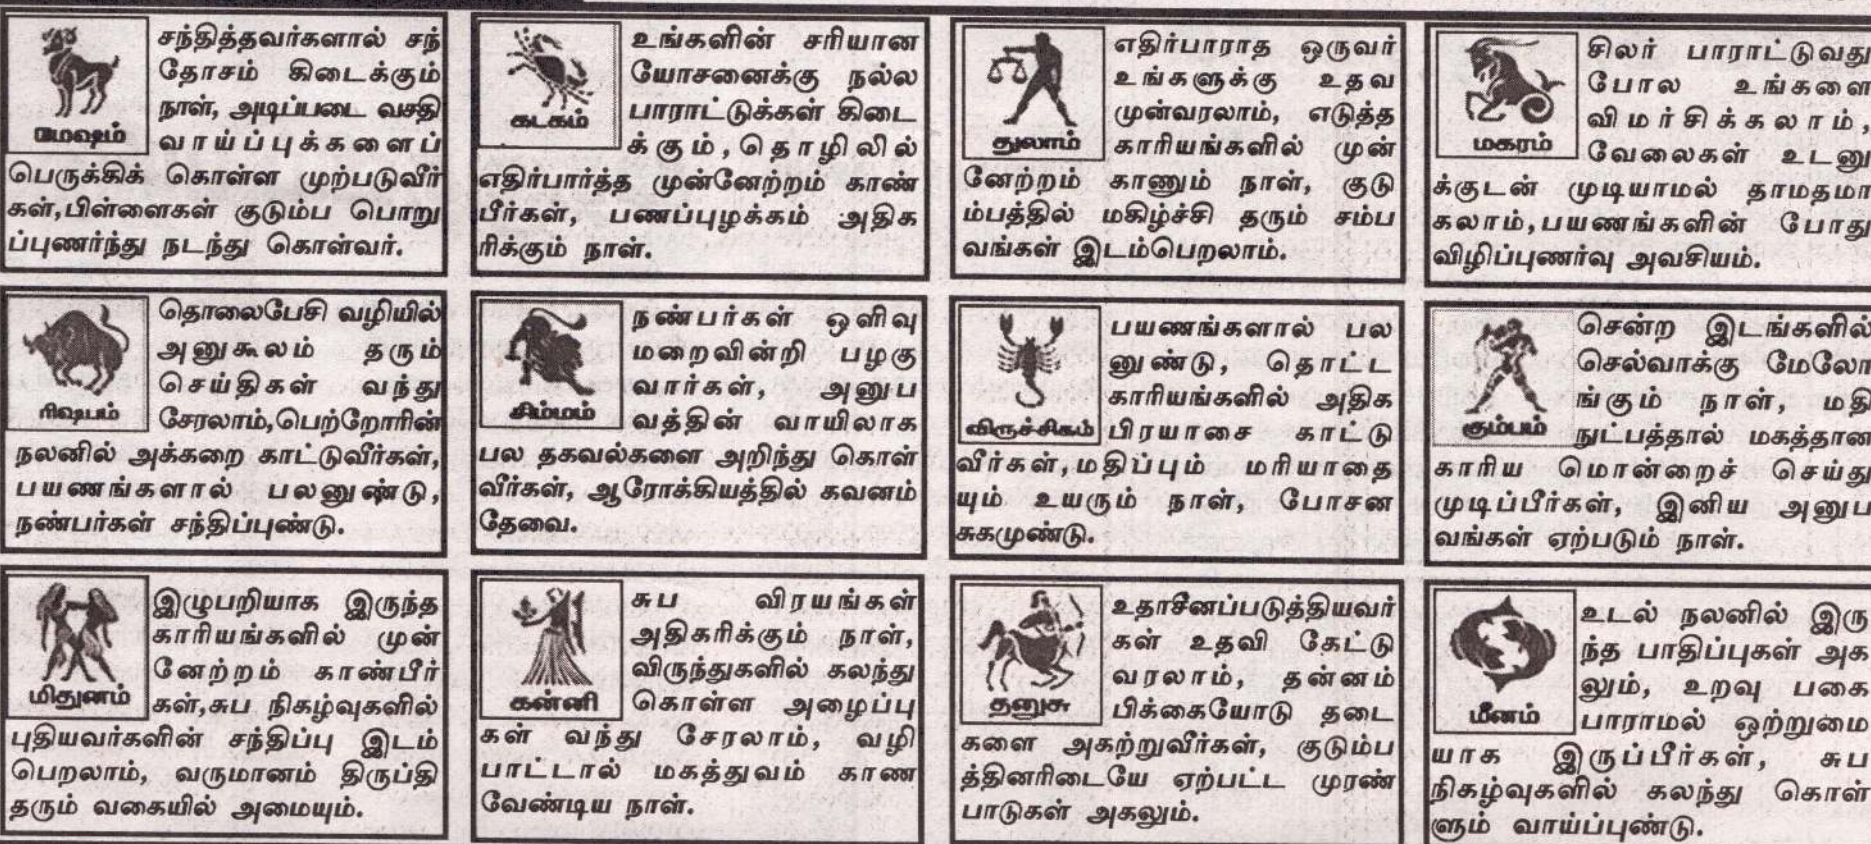 சந்தித்தவர்களால் சந்
தோசம் கிடைக்கும்
நாள், அடிப்படை வசதி
வாய்ப்புக்களைப்
மேஷம்
பெருக்கிக் கொள்ள முற்படுவீர்
கள்,பிள்ளைகள் குடும்ப பொறு
ப்புணர்ந்து நடந்து கொள்வர்.
தொலைபேசி வழியில்
அனுகூலம் தரும்
செய்திகள் வந்து
சேரலாம்,பெற்றோரின்
ரிஷபம்
நலனில் அக்கறை காட்டுவீர்கள்,
பயணங்களால் பலனுண்டு,
நண்பர்கள் சந்திப்புண்டு.
இழுபறியாக இருந்த
காரியங்களில் முன்
னேற்றம் காண்பீர்
கள்,சுப நிகழ்வுகளில்
மிதுனம்
புதியவர்களின் சந்திப்பு இடம்
பெறலாம், வருமானம் திருப்தி
தரும் வகையில் அமையும்.
உங்களின் சரியான
யோசனைக்கு நல்ல
பாராட்டுக்கள் கிடை
க்கும்,தொழிலில்
கடகம்
எதிர்பார்த்த முன்னேற்றம் காண்
பீர்கள், பணப்புழக்கம் அதிக
ரிக்கும் நாள்.
நண்பர்கள் ஒளிவு
மறைவின்றி பழகு
வார்கள், அனுப
வத்தின் வாயிலாக
சிம்மம்
பல தகவல்களை அறிந்து கொள்
வீர்கள், ஆரோக்கியத்தில் கவனம்
தேவை.
சுப விரயங்கள்
அதிகரிக்கும் நாள்,
விருந்துகளில் கலந்து
கொள்ள அழைப்பு
கன்னி
கள் வந்து சேரலாம், வழி
பாட்டால் மகத்துவம் காண
வேண்டிய நாள்.
எதிர்பாராத ஒருவர்
உங்களுக்கு உதவ
முன்வரலாம், எடுத்த
காரியங்களில் முன்
துலாம்
னேற்றம் காணும் நாள், குடு
ம்பத்தில் மகிழ்ச்சி தரும் சம்ப
வங்கள் இடம்பெறலாம்.
பயணங்களால் பல
னுண்டு, தொட்ட
காரியங்களில் அதிக
பிரயாசை காட்டு
விருச்சிகம்
வீர்கள்,மதிப்பும் மரியாதை
யும் உயரும் நாள், போசன
சுகமுண்டு.
உதாசீனப்படுத்தியவர்
கள் உதவி கேட்டு
வரலாம், தன்னம்
பிக்கையோடு தடை
தனுசு
களை அகற்றுவீர்கள், குடும்ப
த்தினரிடையே ஏற்பட்ட முரண்
பாடுகள் அகலும்.
சிலர் பாராட்டுவது
போல உங்களை
விமர்சிக்கலாம்,
வேலைகள் உடனு
மகரம்
க்குடன் முடியாமல் தாமதமா
கலாம்,பயணங்களின் போது
விழிப்புணர்வு அவசியம்.
சென்ற இடங்களில்
செல்வாக்கு மேலோ
ங்கும் நாள், மதி
நுட்பத்தால் மகத்தான
கும்பம்
காரிய மொன்றைச் செய்து
முடிப்பீர்கள், இனிய அனுப
வங்கள் ஏற்படும் நாள்.
உடல் நலனில் இரு
ந்த பாதிப்புகள் அக
லும், உறவு பகை
பாராமல் ஒற்றுமை
மீனம்
யாக இருப்பீர்கள், சுப
நிகழ்வுகளில் கலந்து கொள்
ளும் வாய்ப்புண்டு.